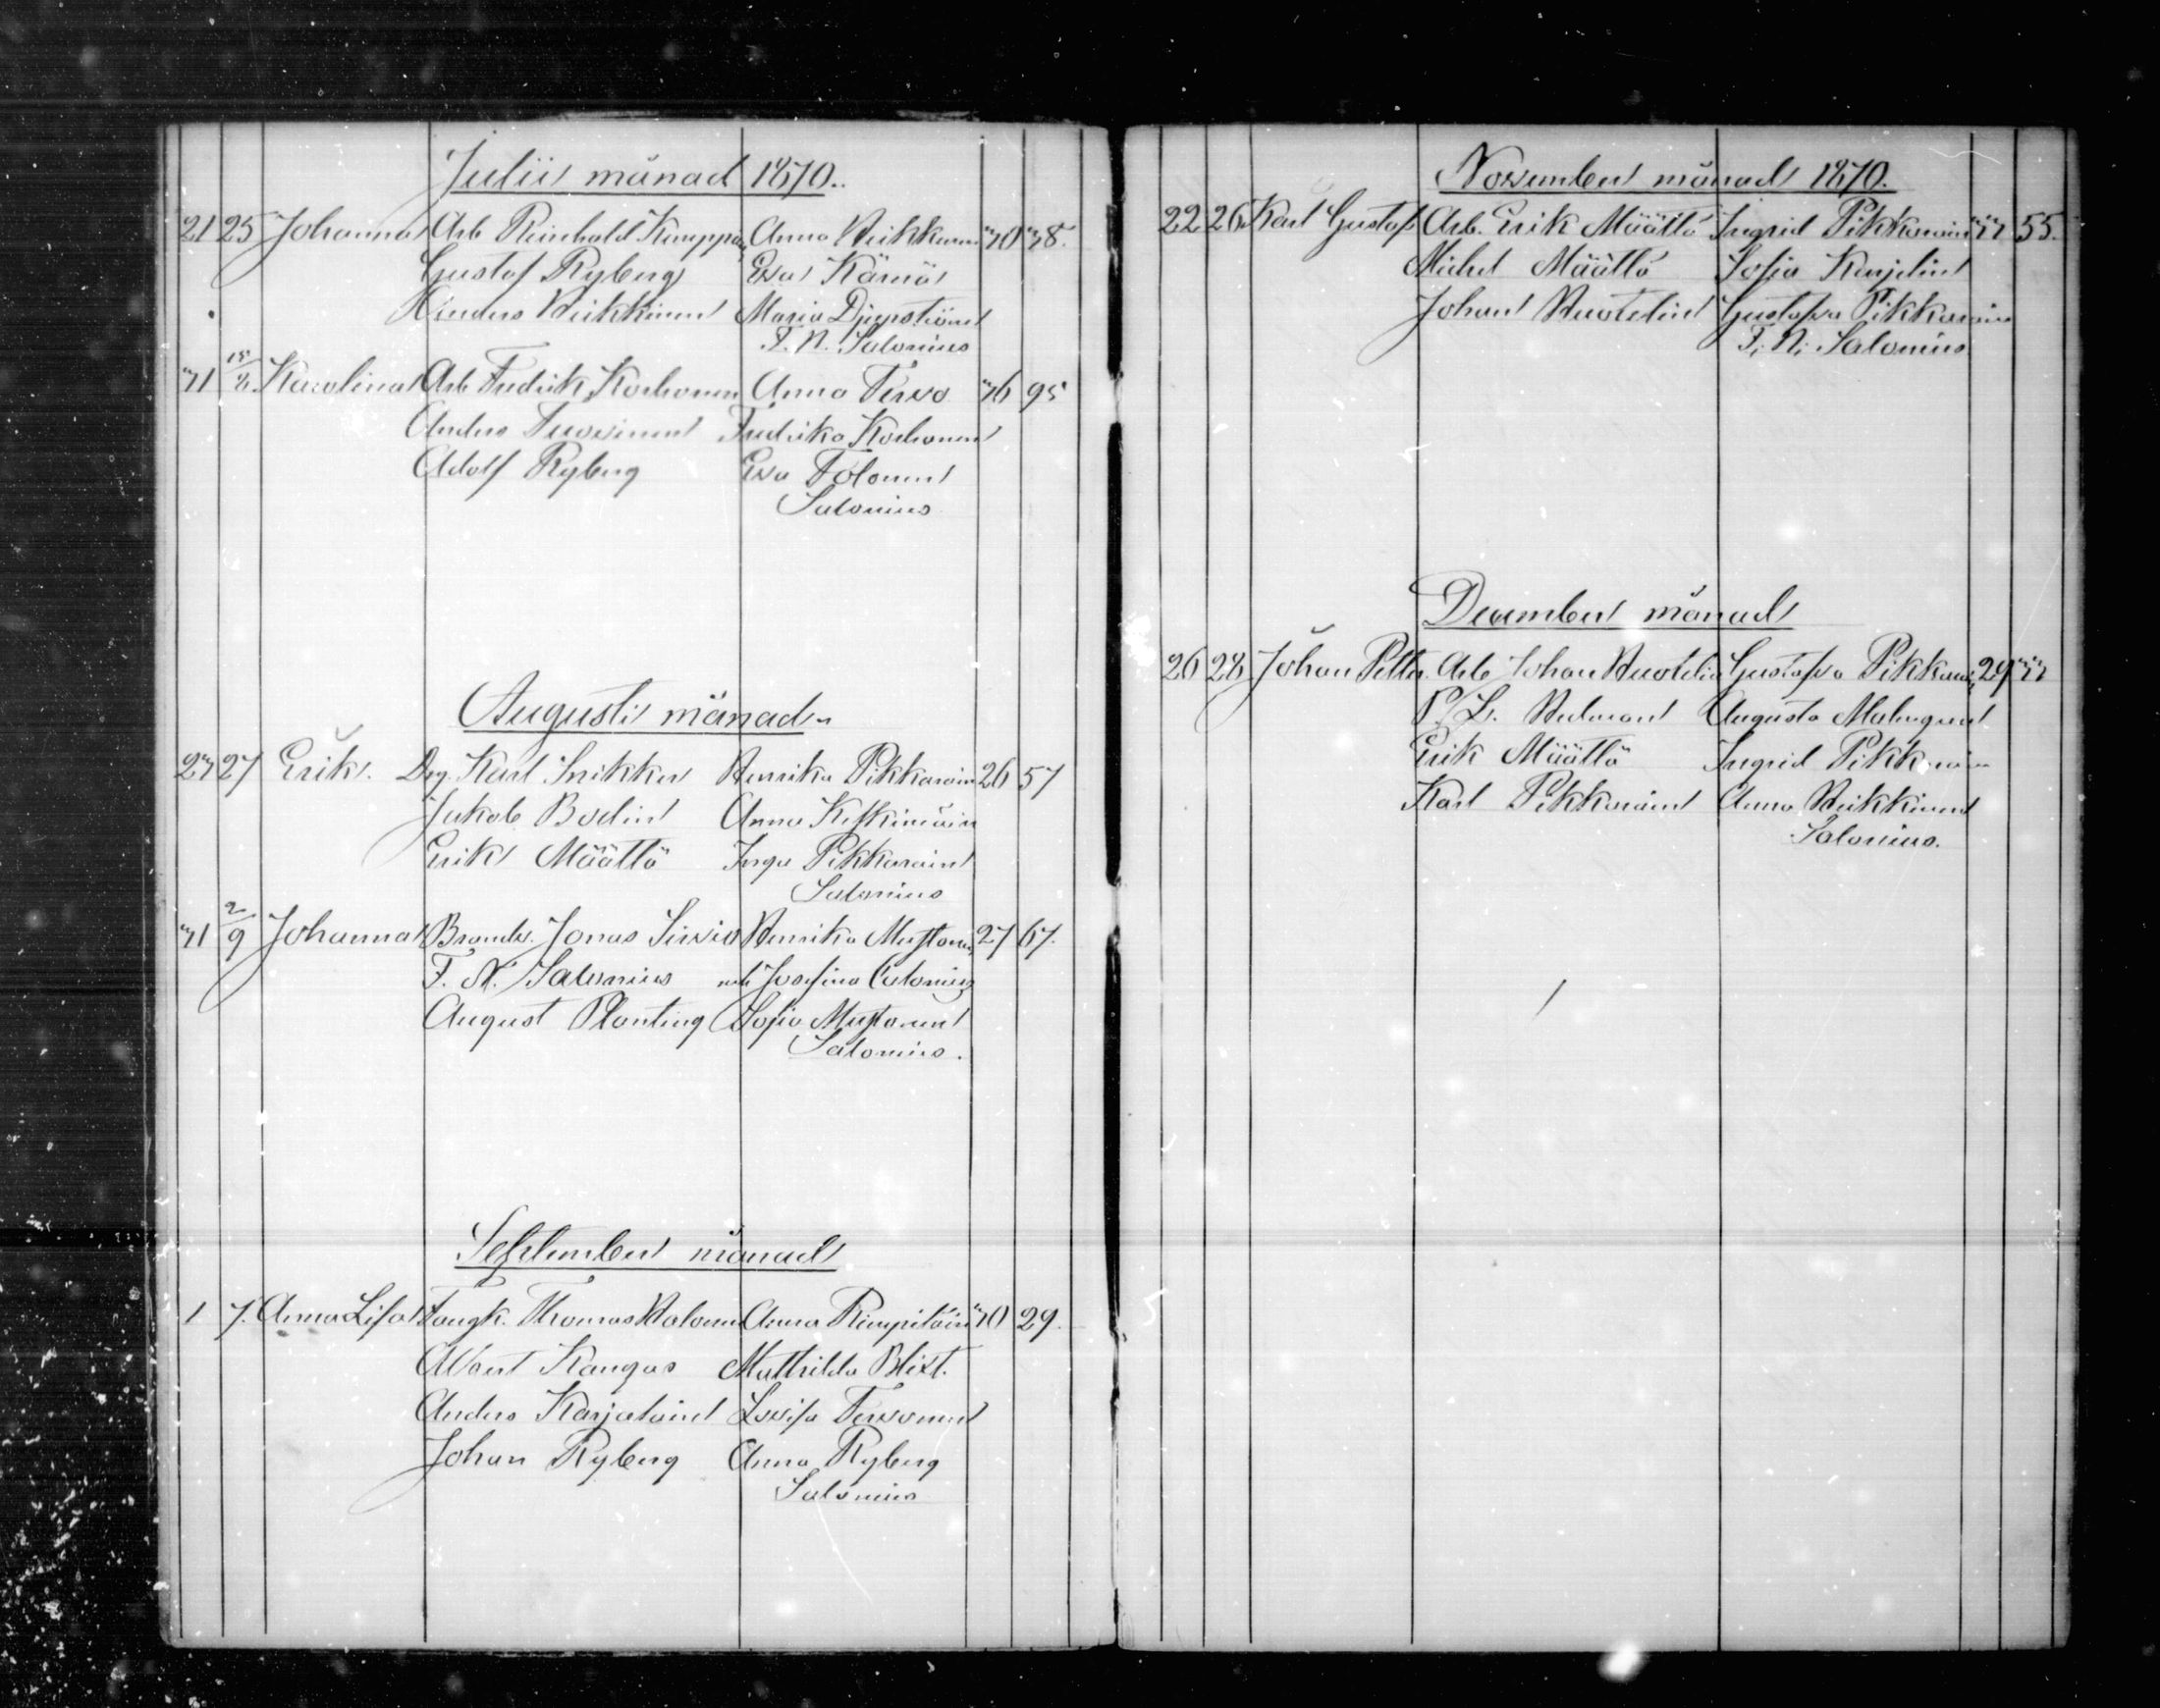 Julii månad 1870.
21 25 Johanna Arb Reinhold Kemppa, Anna Heikkinen 30 38.
Gustaf Ryberg Eva Kärnä
Anders Heikkinen Maria Djupström
F. N. Salonius
31 15/8. Karolina Arb Fredrik Korhonen Anna Tervo 36 95
Anders Fredrika Korhonen
Adolf Ryberg Eva Tolonen
Salonius
Augusti månad
23 27 Erik. Drg. Karl Snikker Henrika Pikkarain 26 57
Jakob Bodin Anna Keskimäin
Erik Määttö Inga Pikkarain
Salonius
31 2/9 Johanna Brandv. Jonas Sirviö Henrika Mustonen, 27 67.
F. N. Salonius och Josefina Calonius
August Planting Sofia Mustonen
Salonius.
September månad
1 7. Anna Lisa Fångk. Thomas Halonen Anna Rimpiläin 30 29.
Albert Kangas Mathilda Blixt.
Anders Karjalain Lovisa Tervonen
Johan Ryberg Anna Ryberg
Salonius
November månad 1870.
22 26 Karl Gustaf Arb. Erik Määttö Ingrid Pikkarain 33 55.
Michel Määttö Sofia Kenjelin
Johan Huotelin Gustafva Pikkarain
F. N. Salonius
December månad
26 28 Johan Petter. Arb Johan Huotelin Gustafva Pikkarai, 29 33
P. L. Hedman Augusta Malmgren
Erik Määttö Ingrid Pikkarain
Karl Pikkarain Anna Heikkinen
Salonius.